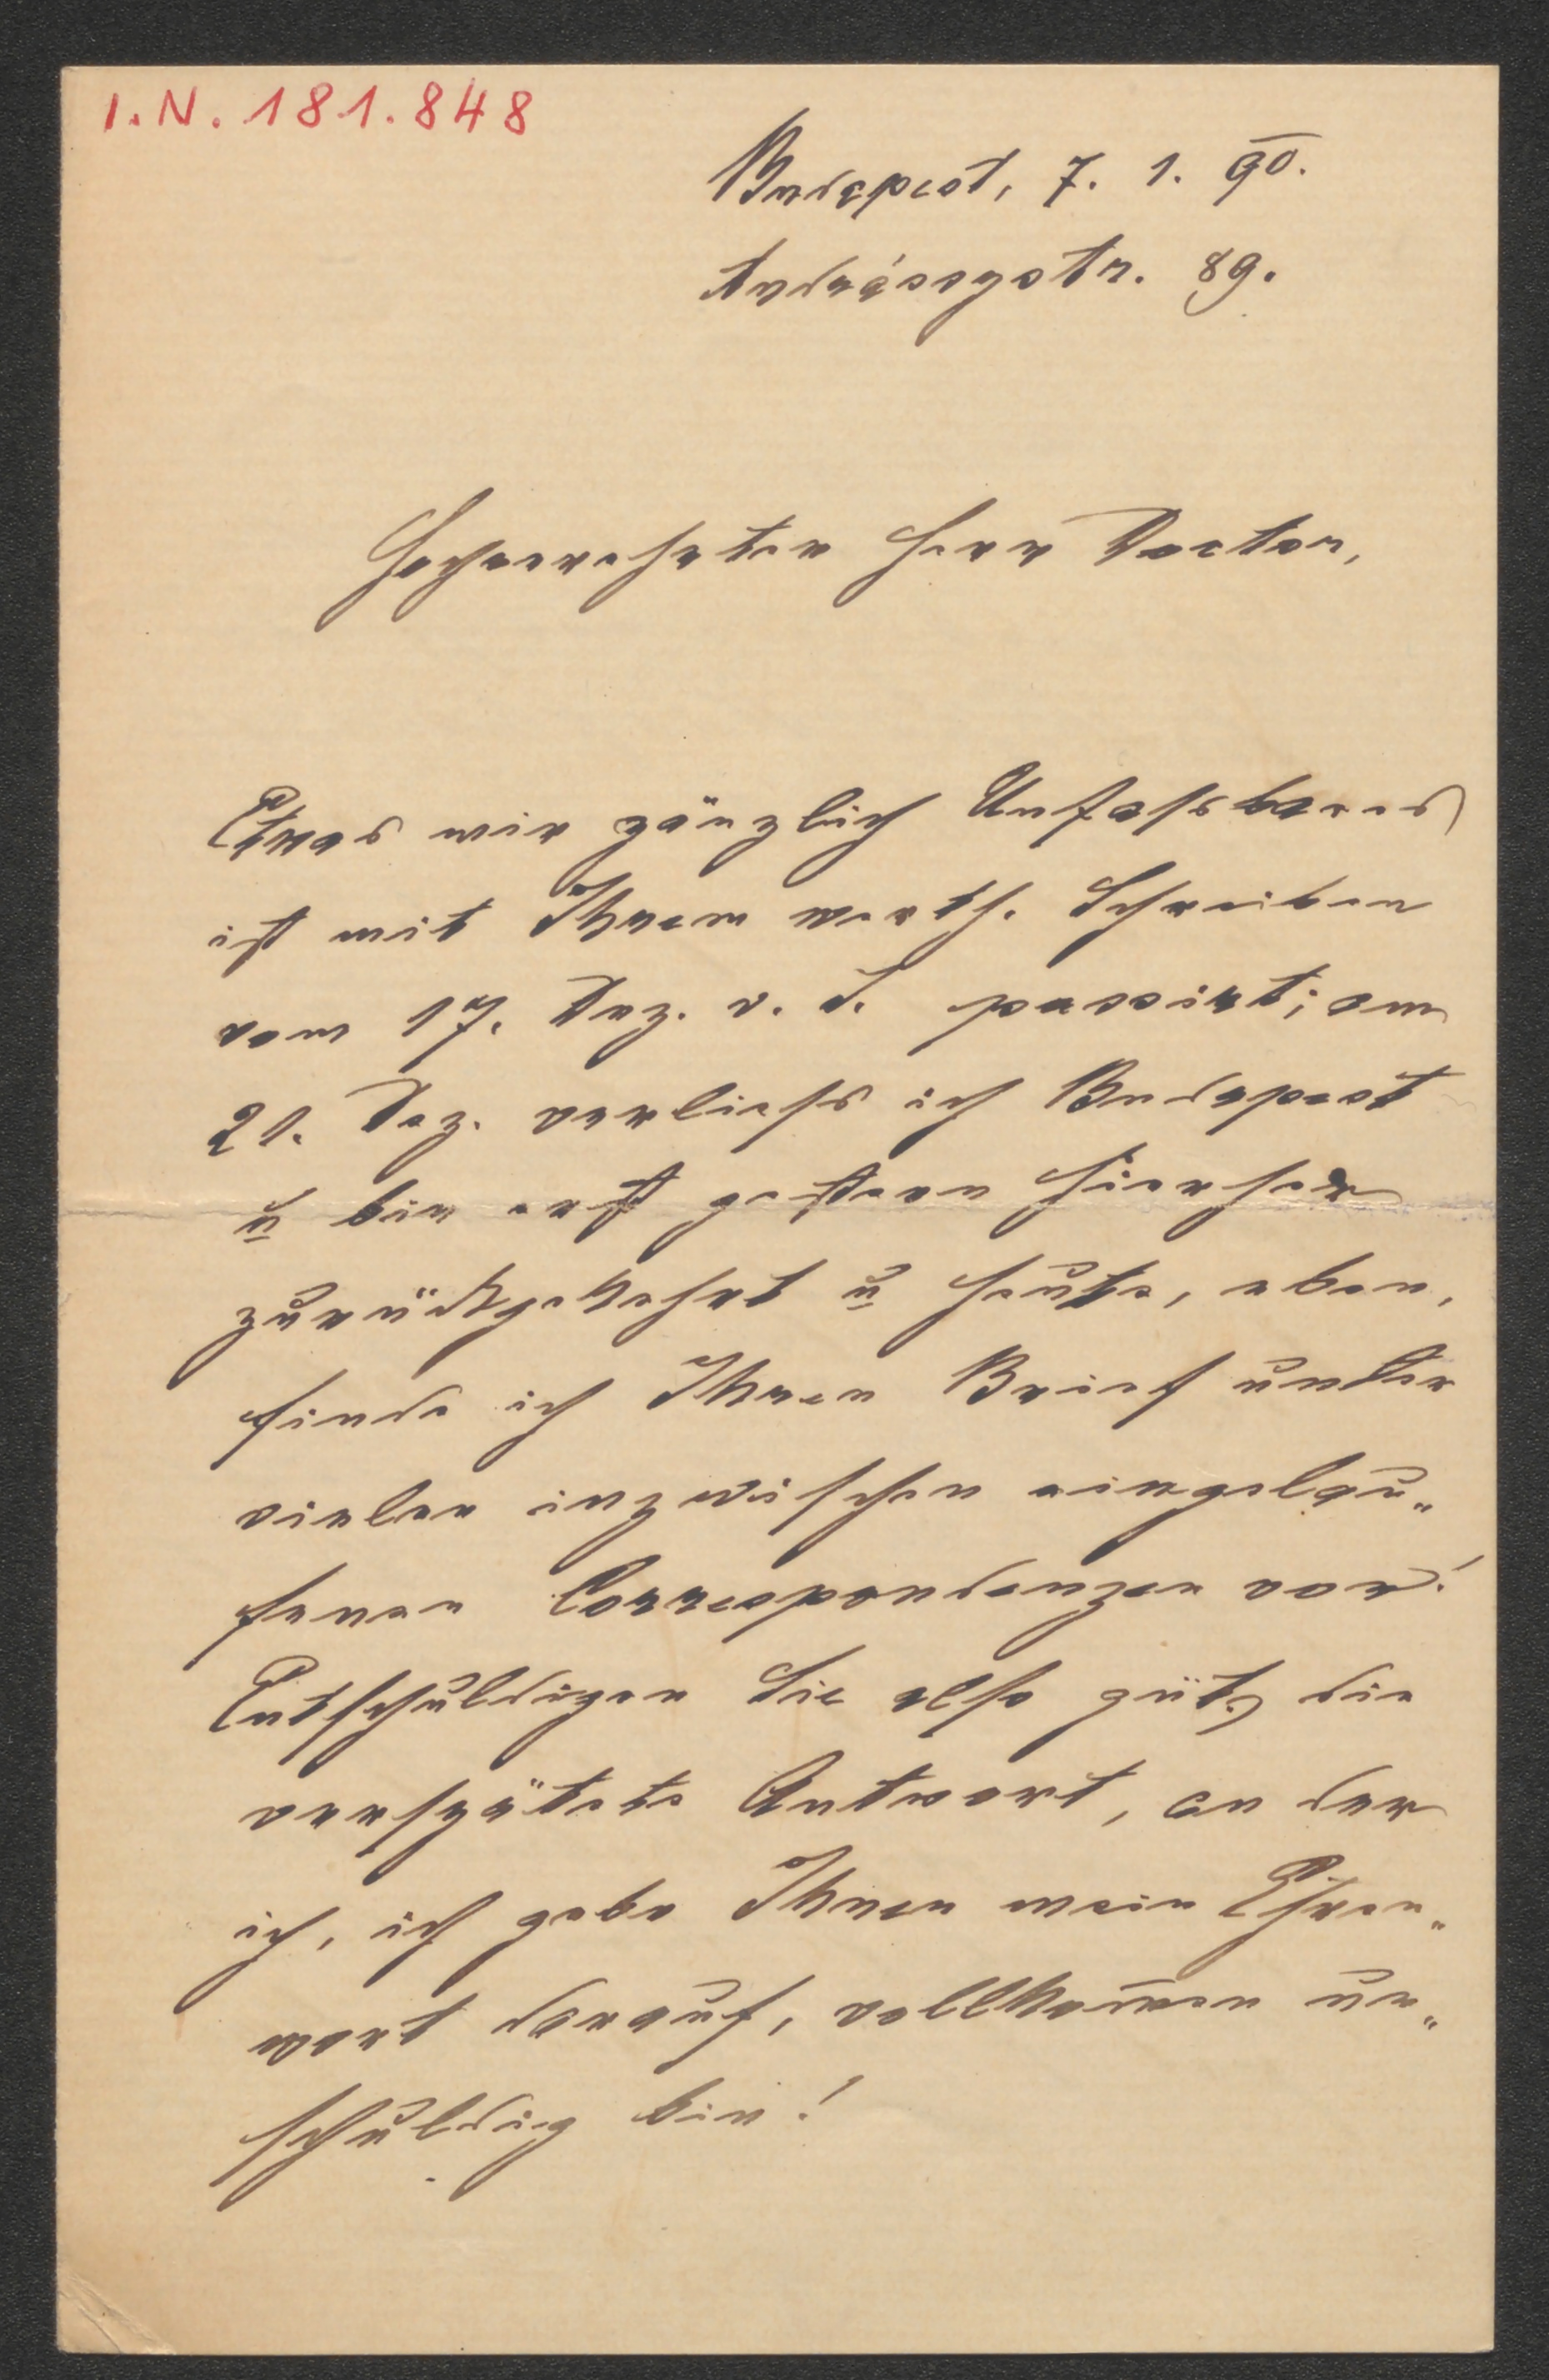 I.N. 181.848
Budapest, 7. 1. 90.
Andrássystr. 89.
Hochverehrter Herr Doctor,
Etwas mir gänzlich Unfassbares
ist mit Ihrem werth. Schreiben
vom 17. Dez. v. J. passirt; am
21. Dez. verliess ich Budapest
u bin erst gestern hierher
zurückgekehrt u heute, eben,
finde ich Ihren Brief unter
vielen inzwischen eingelau„
fenen Correspondenzen vor!
Entschuldigen Sie also güt. die
verspätete Antwort, an der
ich, ich gebe Ihnen mein Ehren„
wort darauf, vollkom̅en un„
schuldig bin!